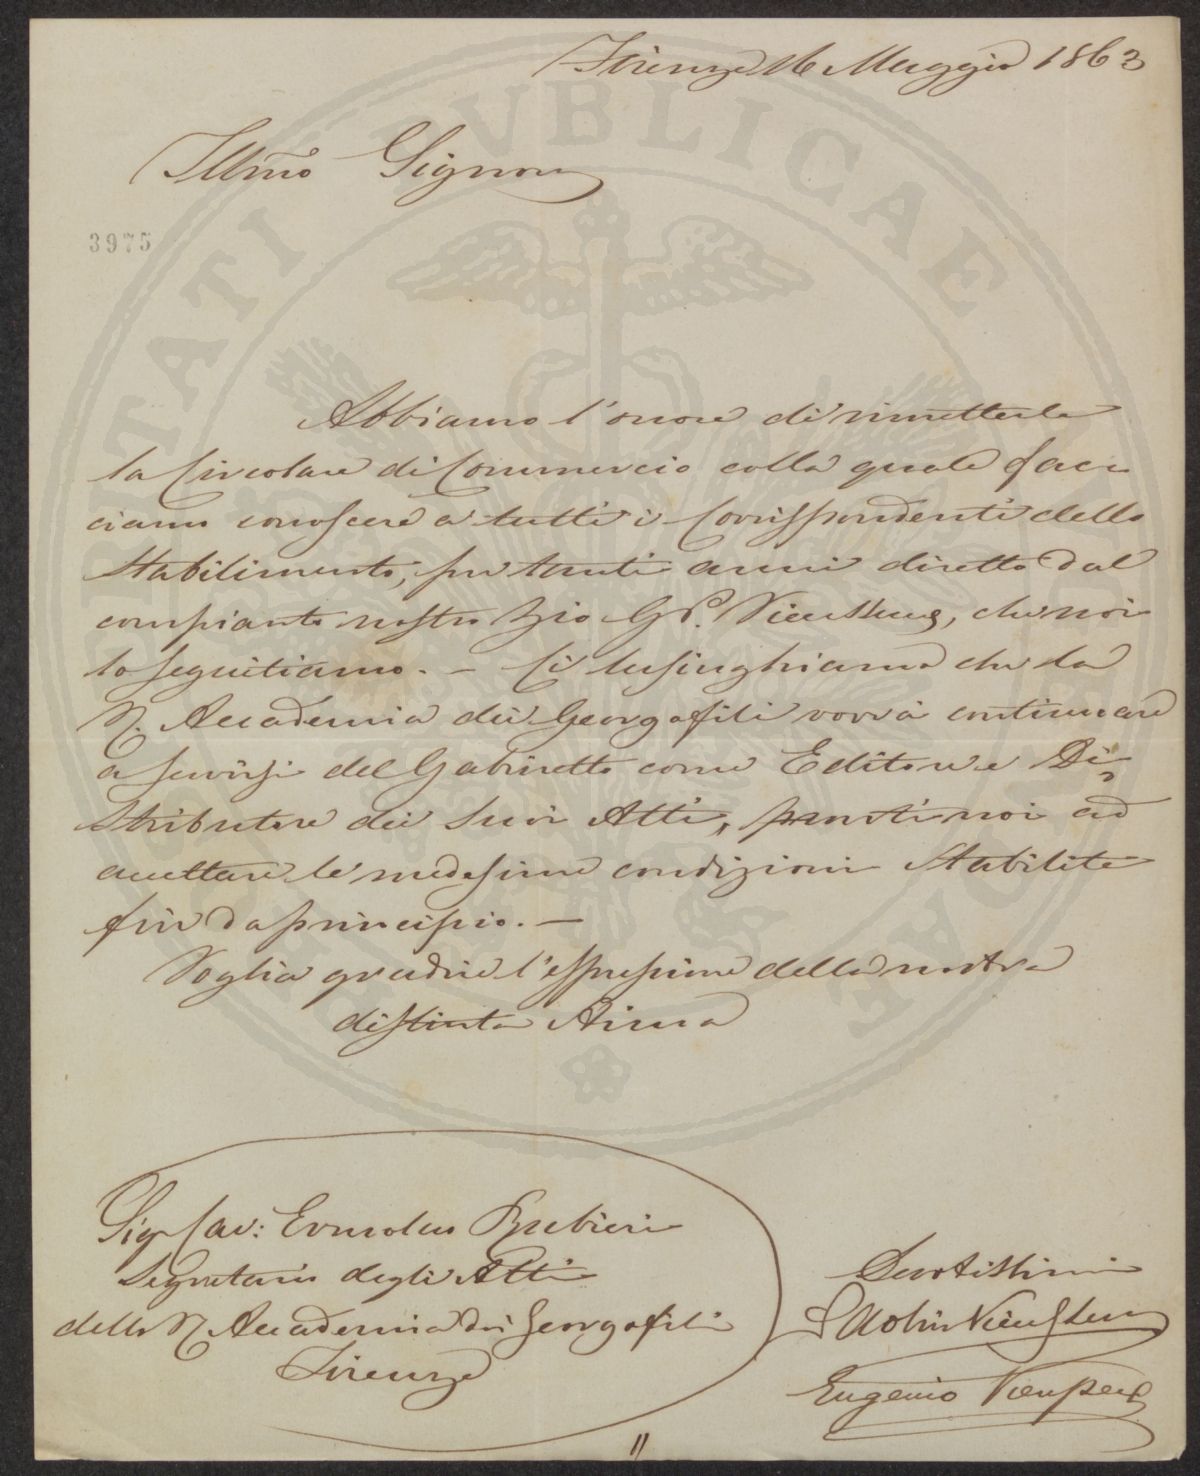 Firenze 16 Maggio 1863
Illmo Signore
3975
Abbiamo l'onore di rimetterle
la Circolare di Commercio colla quale fac
ciamo conoscere a tutti i Corrispondenti dello
Stabilimento, per tanti anni diretto dal
compianto nostro Zio G. P. Vieusseux, che noi
lo seguitiamo. — Ci lusinghiamo che la
R. Accademia dei Georgofili vorrà continuare
a servirsi del Gabinetto come Editore e Di-
stributore dei suoi Atti, pronti noi ad
accettare le medesime condizioni stabilite
fin da principio. —
Voglia gradire l'espressione della nostra
distinta stima
Sig Cav: Ermolao Rubieri
Segretario degli Atti
della R. Accademia dei Georgofili
Firenze
Devotissimi
Vieusseux
Eugenio Vieusseux
PVBLICAE